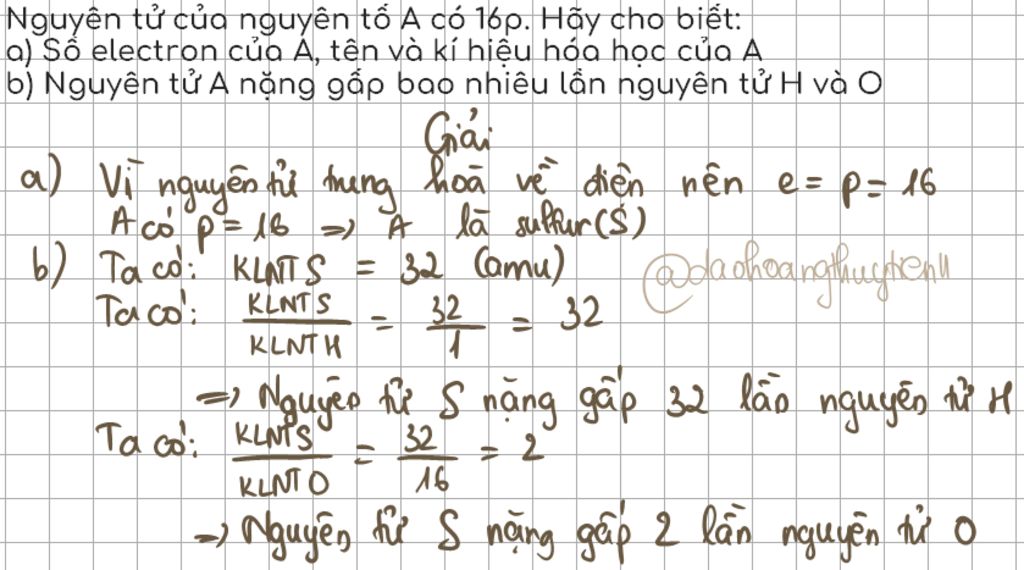 Nguyên tử của nguyên tố A có 16p. Hãy cho biết:
a) Số electron của A, tên và kí hiệu hóa học của A
b) Nguyên tử A nặng gấp bao nhiêu lần nguyên tử H và O
Giải
a) Vì nguyên tử trung hoà về điện nên e = p = 16
A có p = 16 => A là sulfur(S)
b) Ta có: KLNT S = 32 (amu)
@daohoangthuytienn
Ta có: KLNT S / KLNT H = 32 / 1 = 32
=> Nguyên tử S nặng gấp 32 lần nguyên tử H
Ta có: KLNT S / KLNT O = 32 / 16 = 2
=> Nguyên tử S nặng gấp 2 lần nguyên tử O